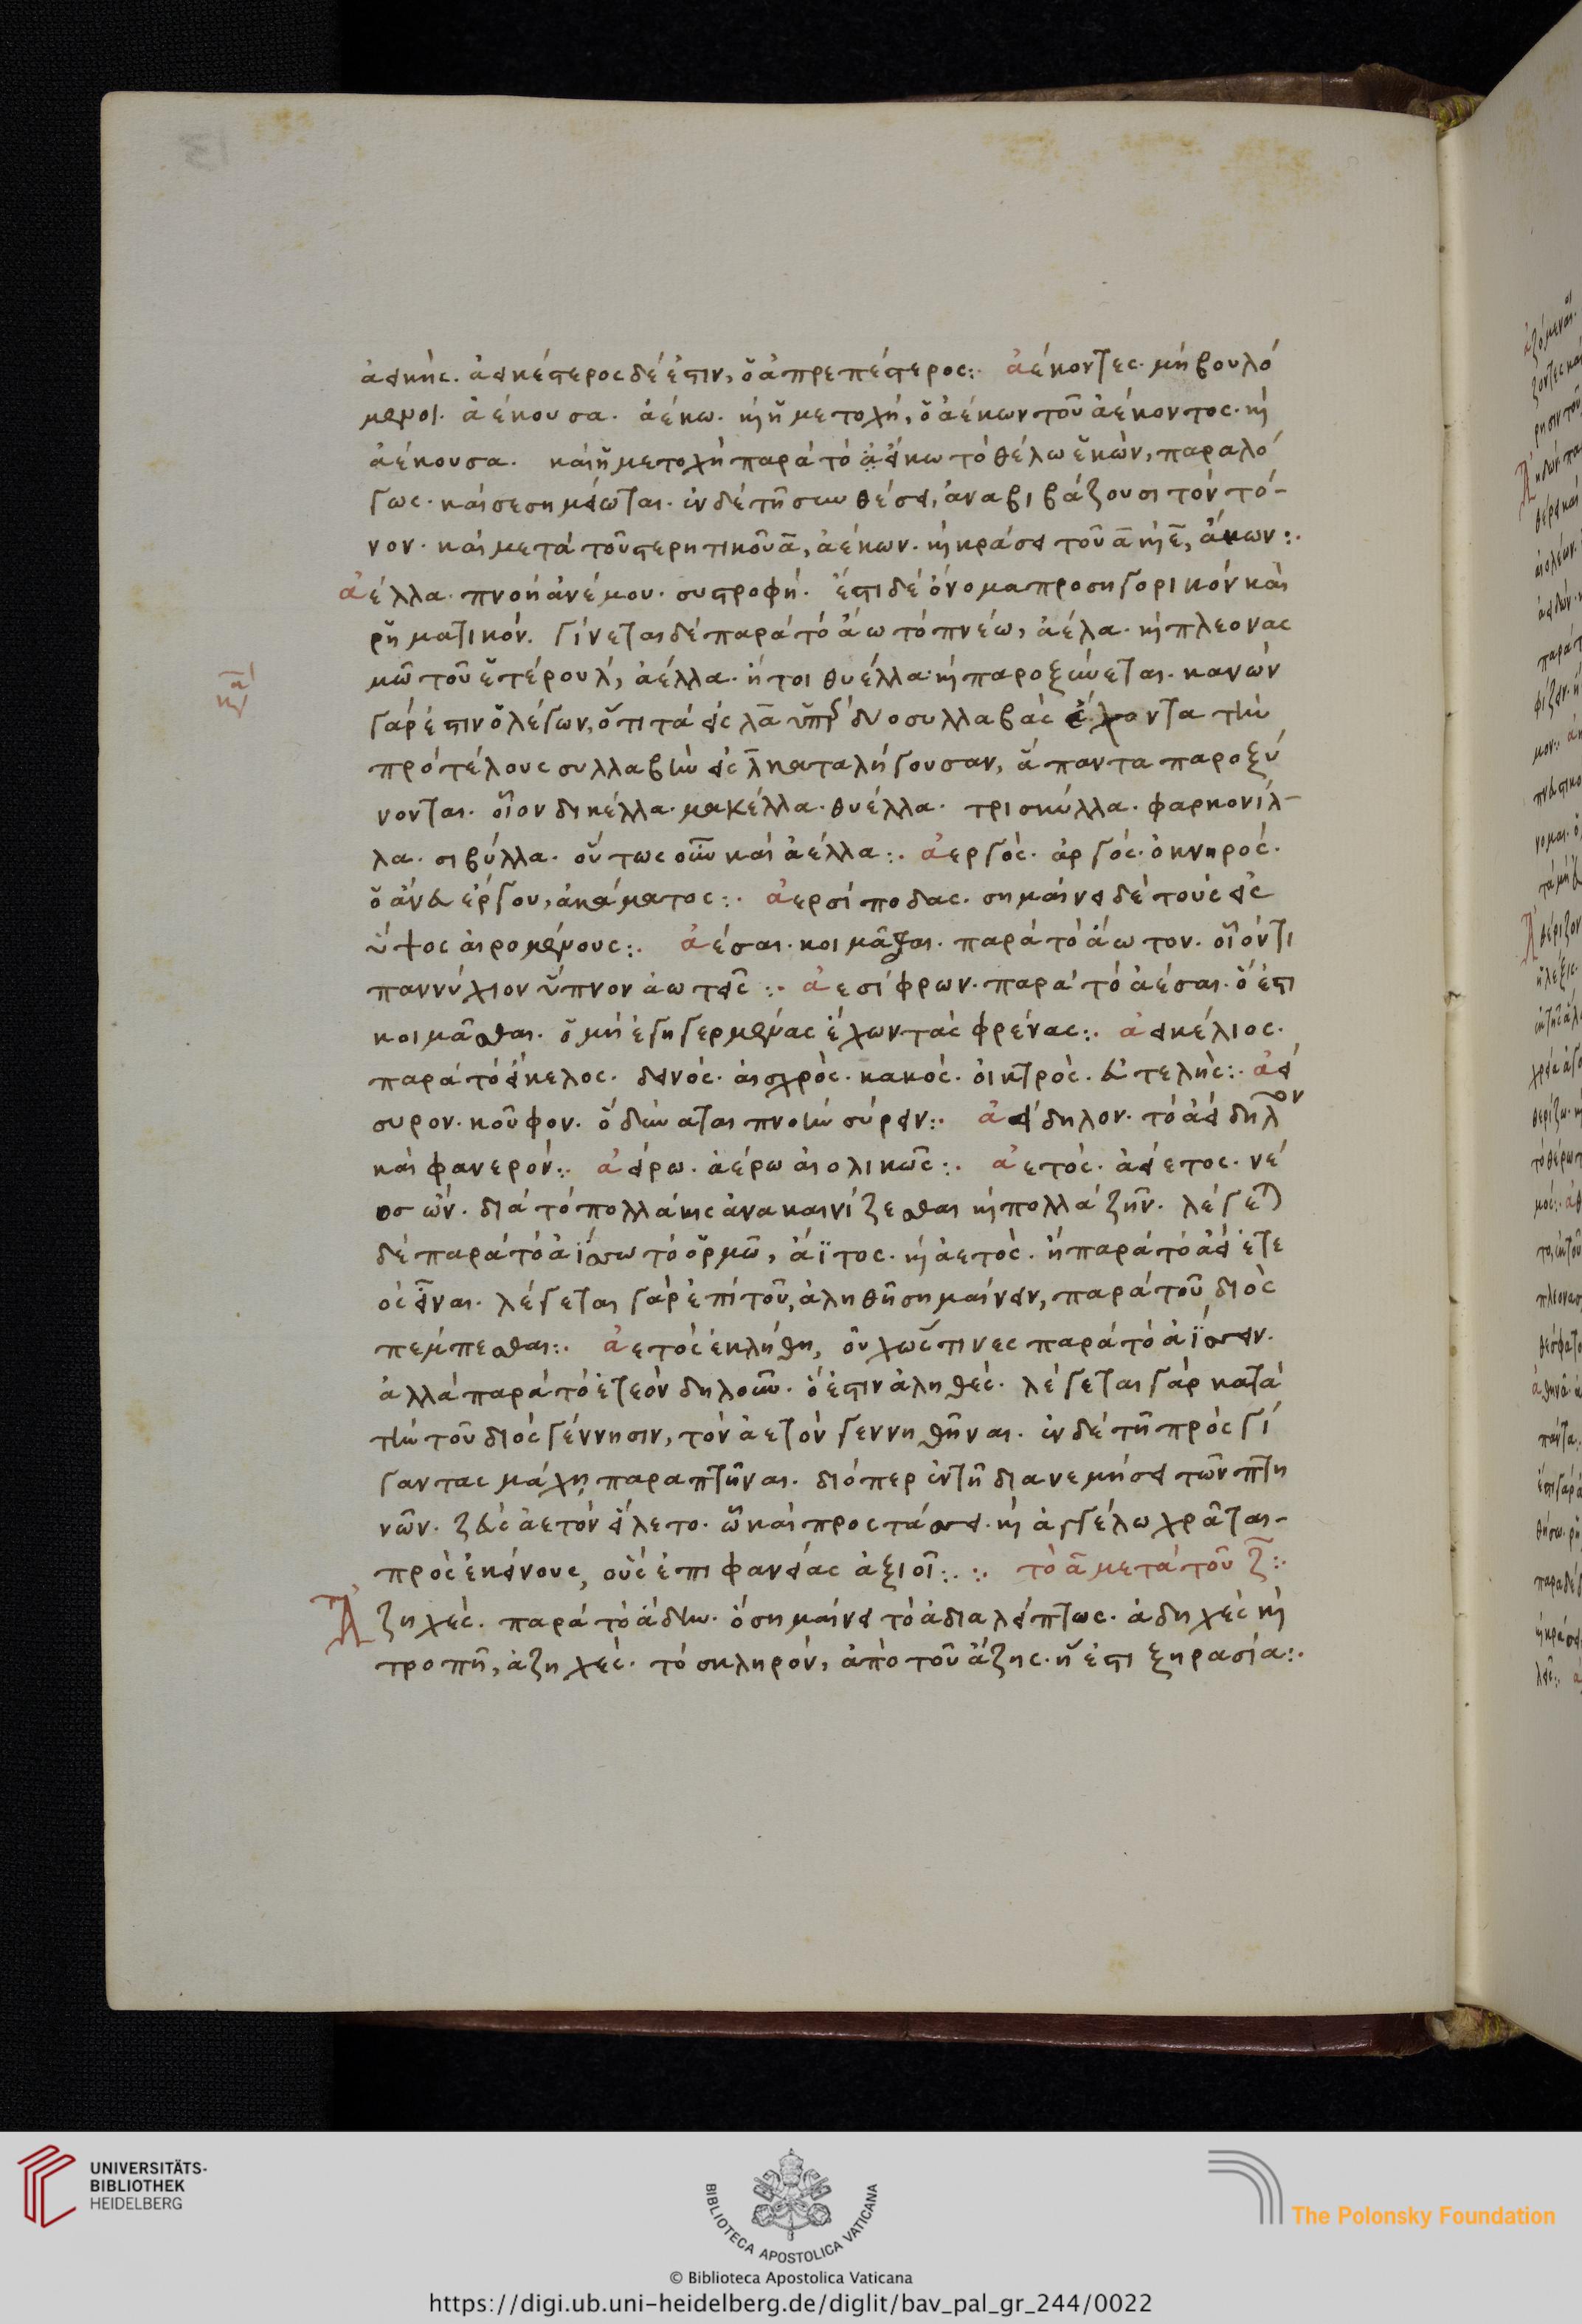 ἀεικής. ἀεικέστερος δέ ἐστιν, ὁ ἀπρεπέστερος:. ἀέκοντες. μὴ βουλό
μενοι. ἀέκουσα. ἀέκω. καὶ ἡ μετοχή, ὁ ἀέκων τοῦ ἀέκοντος. καὶ
ἀέκουσα. καὶ ἡ μετοχὴ παρὰ τὸ εἴκω τὸ θέλω ἑκών, παραλό
γως. καὶ σεσημείωται. ἐν δὲ τῇ συνθέσει, ἀναβιβάζουσι τὸν τό-
νον. καὶ μετὰ τοῦ στερητικοῦ α, ἀέκων. καὶ κράσει τοῦ α καὶ ε, ἄκων:.
ἀέλλα. πνοὴ ἀνέμου. συστροφή. ἔστι δὲ ὄνομα προσηγορικὸν καὶ
ῥηματικόν. γίνεται δὲ παρὰ τὸ ἄω τὸ πνέω, ἀέλα. καὶ πλεονας
μῷ τοῦ ἑτέρου λ, ἀέλλα. ἤτοι θυέλλα· καὶ παροξύνεται. κανὼν
γάρ ἐστιν ὁ λέγων, ὅτι τὰ εἰς λα ὑπὲρ δύο συλλαβὰς ἔχοντα τὴν
πρὸ τέλους συλλαβὴν εἰς λ καταλήγουσαν, ἅπαντα παροξύ
νονται. οἷον δικέλλα. μακέλλα. θυέλλα. τρισκύλλα. φαρκονίλ-
λα. σιβύλλα. οὕτως οὖν καὶ ἀέλλα:. ἀεργός. ἀργός. ὀκνηρός.
ὁ ἄνευ ἔργου, ἀκάματος:. ἀερσίποδας. σημαίνει δὲ τοὺς εἰς
ὕψος αἰρομένους:. ἀέσαι. κοιμᾶσθαι. παρὰ τὸ ἄωτον. οἱονεὶ
παννύχιον ὕπνον ἀωτεῖς:. ἀεσίφρων. παρὰ τὸ ἀέσαι. ὅ ἐστι
κοιμᾶσθαι. ὁ μὴ ἐγηγερμένας ἔχων τὰς φρένας:. ἀεικέλιος.
παρὰ τὸ εἴκελος. δεινός. αἰσχρός. κακός. οἰκτρός. εὐτελής:. ἀεί
συρον. κοῦφον. ὃ δύναται πνοὴν σύρειν:. ἀείδηλον. τὸ ἀεὶ δῆλον
καὶ φανερόν:. ἀείρω. ἀέρω αἰολικῶς:. ἀετός. ἀείετος. νέ
ος ὤν. διὰ τὸ πολλάκις ἀνακαινίζεσθαι καὶ πολλὰ ζῆν. λέγεται
δὲ παρὰ τὸ ἀΐσσω τὸ ὁρμῶ, ἄϊτος. καὶ ἀετός. ἢ παρὰ τὸ ἀεὶ ἔτε
ὸς εἶναι. λέγεται γὰρ ἐπὶ τοῦ, ἀληθῆ σημαίνειν, παρὰ τοῦ διὸς
πέμπεσθαι:. ἀετὸς ἐκλήθη, οὐχ ὥς τινες παρὰ τὸ ἀΐσσειν.
ἀλλὰ παρὰ τὸ ἐτεὸν δηλοῦν. ὅ ἐστιν ἀληθές. λέγεται γὰρ κατὰ
τὴν τοῦ διὸς γέννησιν, τὸν ἀετὸν γεννηθῆναι. ἐν δὲ τῇ πρὸς γί
γαντας μάχῃ παραπτῆναι. διόπερ ἐν τῇ διανεμήσει τῶν πτη
νῶν. ζεὺς ἀετὸν εἵλετο. ᾧ καὶ προστάσσει. καὶ ἀγγέλω χρᾶται-
πρὸς ἐκείνους, οὓς ἐπιφανείας ἀξιοῖ:. :. τὸ α μετὰ τοῦ ζ:.
Ἀζηχές. παρὰ τὸ ἄδην. ὃ σημαίνει τὸ ἀδιαλείπτως. ἀδηχὲς καὶ
τροπῇ, ἀζηχές. τὸ σκληρόν, ἀπὸ τοῦ ἄζης. ἥ ἐστι ξηρασία:.
UNIVERSITÄTS-
BIBLIOTHEK
HEIDELBERG
BIBLIOTECA APOSTOLICA VATICANA
The Polonsky Foundation
© Biblioteca Apostolica Vaticana
https://digi.ub.uni-heidelberg.de/diglit/bav_pal_gr_244/0022